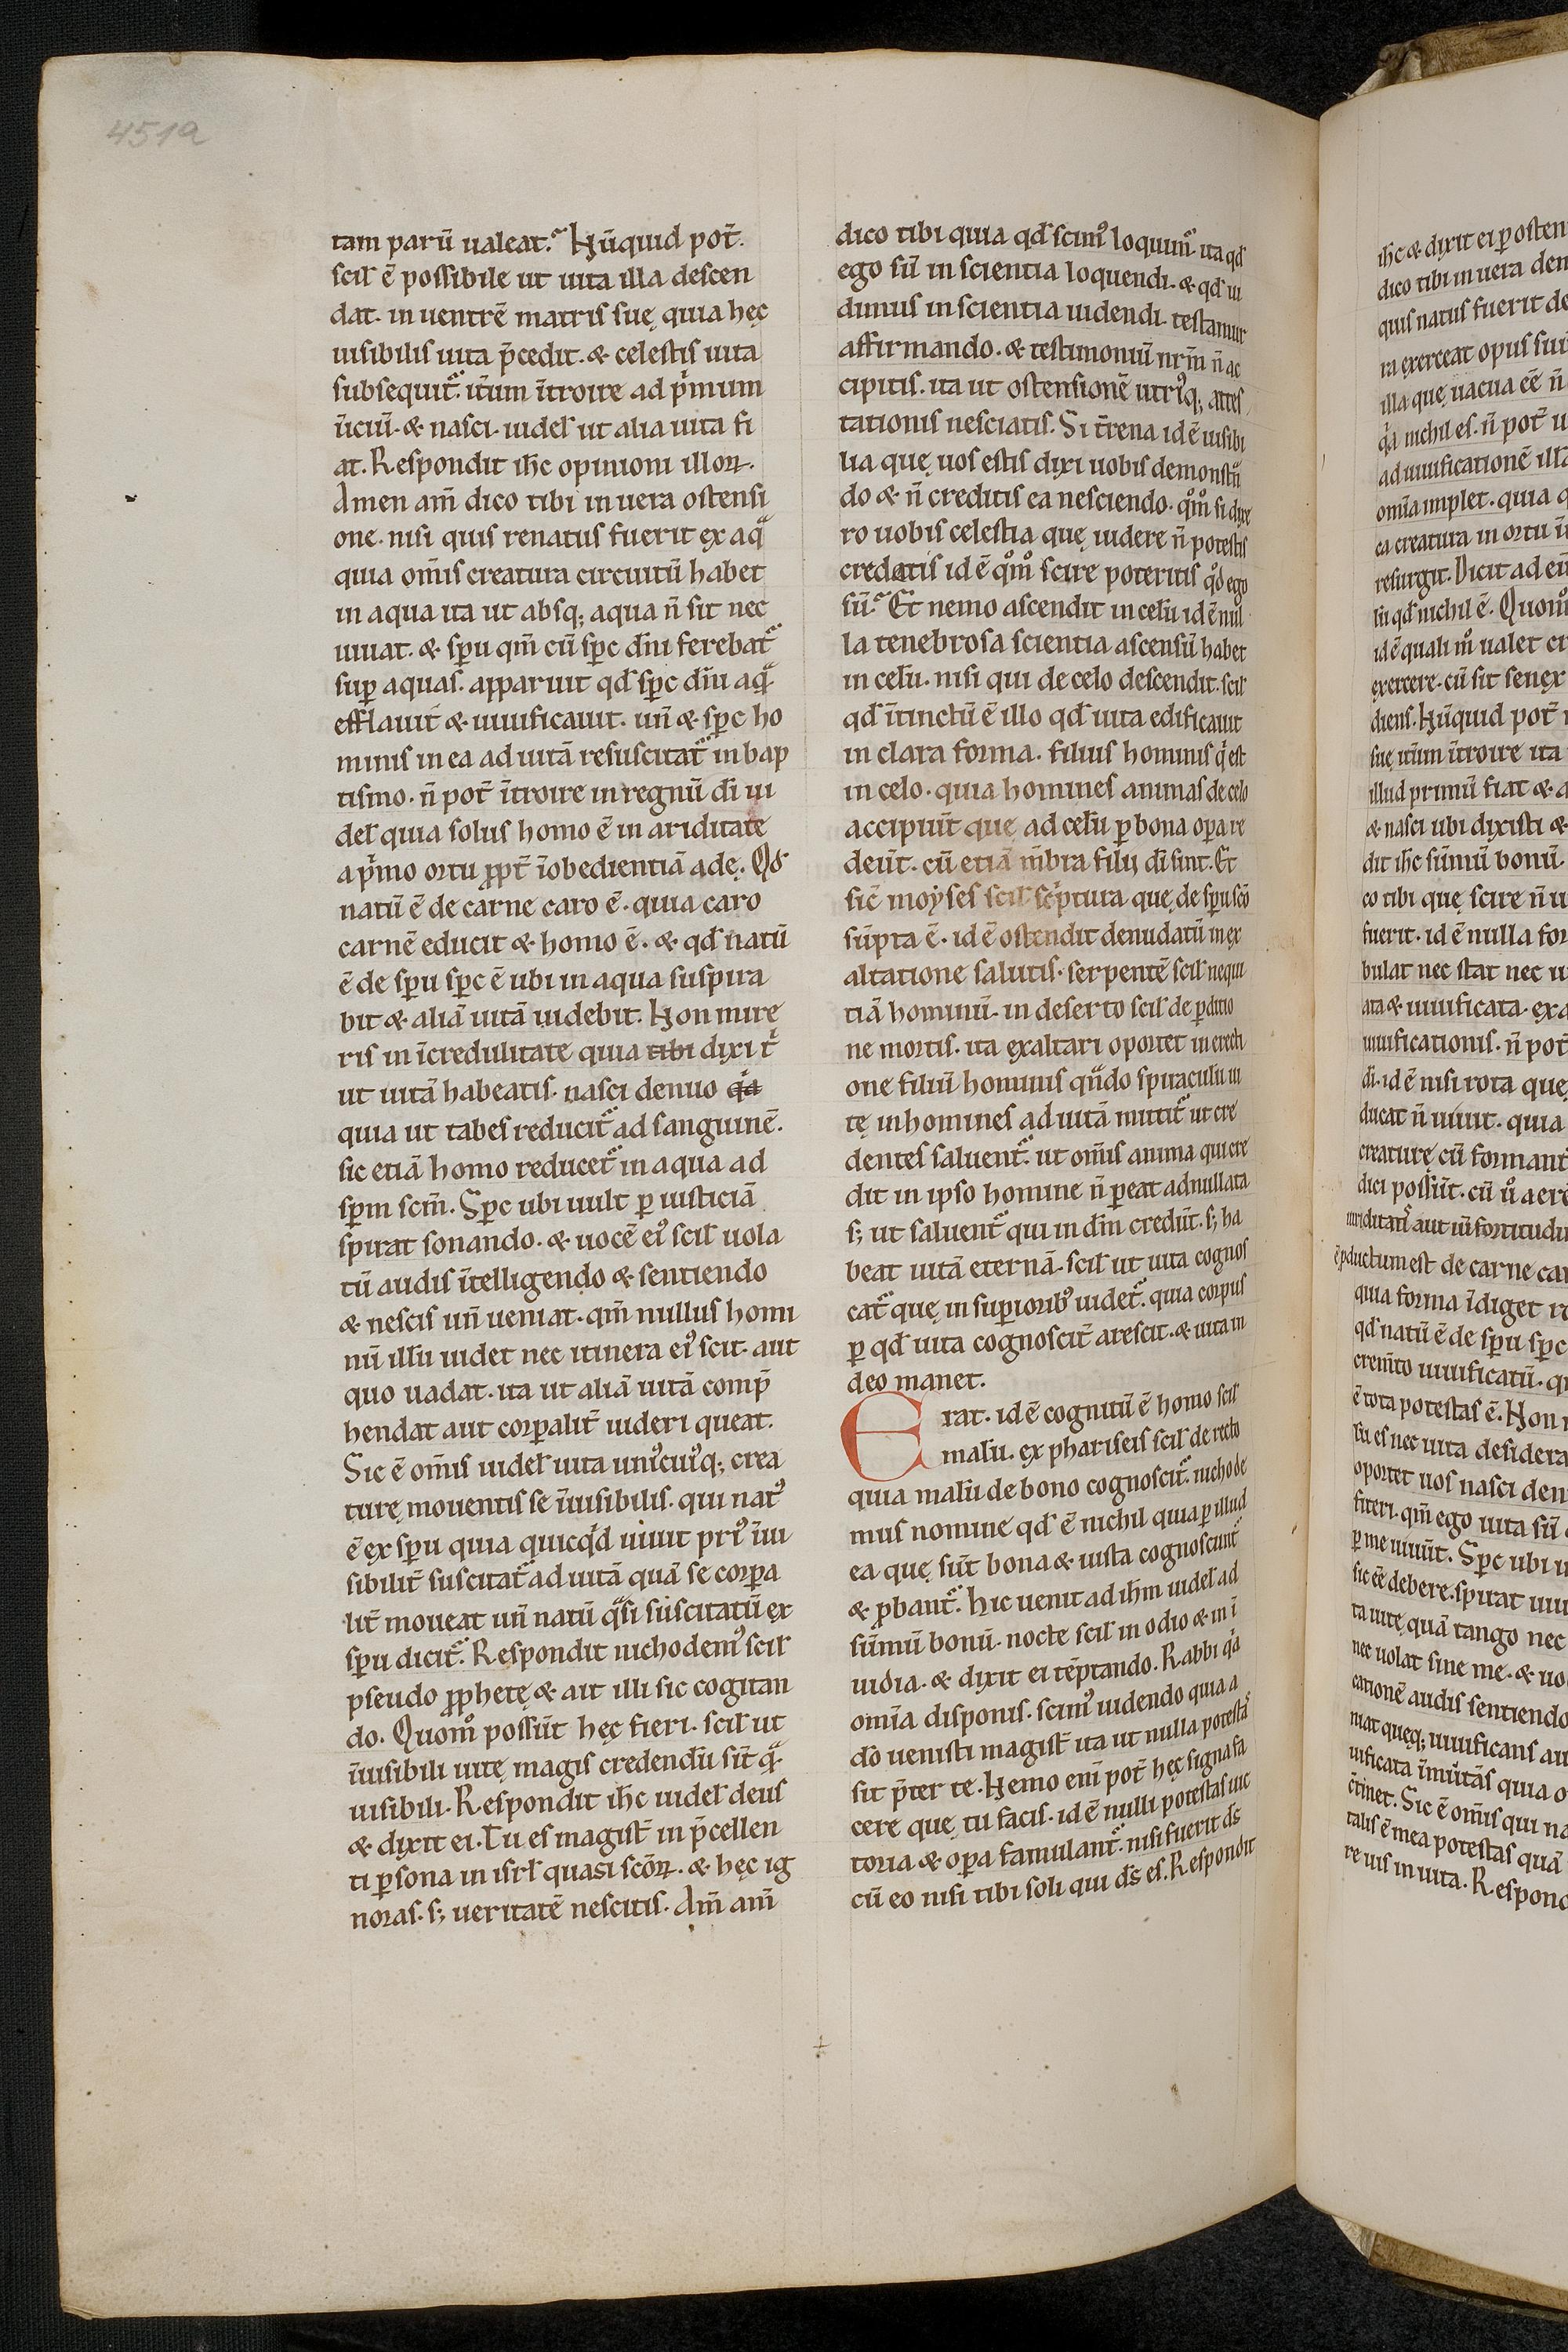 4519
tam parū ualeat. Nūquid pot̄.
scil' ē possibile ut uita illa descen
dat. in uentrē matris suę quia hęc
uisibilis uita p̄cedit. & celestis uita
subsequit᷑. it̄um īt̄roire ad pͥmum
ūiciū. & nasci. uidel' ut alia uita fi
at. Respondit ih̄c opinioni illoꝝ.
Amen am̄ dico tibi in uera ostensi
one. nisi quis renatus fuerit ex aqͣ
quia om̄is creatura circuitū habet
in aqua ita ut absq; aqua n̄ sit nec
uiuat. & sp̄u qm̄ cū sp̄c dn̄i ferebat᷑
suꝑ aquas. apparuit qd' sp̄c dīu aqͣ
efflauit & uiuificauit. un̄ & sp̄c ho
minis in ea ad uitā resuscitat᷑ in bap
tismo. n̄ pot̄ īt̄roire in regnū dī ui
del' quia solus homo ē in ariditate
a pͥmo ortu ꝓpt̄ īobedientiā adę. Qd'
natū ē de carne caro ē. quia caro
carnē educit & homo ē. & qd' natū
ē de sp̄u sp̄c ē ubi in aqua suspira
bit & aliā uitā uidebit. Non mire
ris in īcredulitate quia tibi dixi t͛
ut uitā habeatis. nasci denuo qͥa
quia ut tabes reducit᷑ ad sanguinē.
sic etiā homo reducet᷑ in aqua ad
sp̄m scm̄. Sp̄c ubi uult ꝑ iusticiā
spirat sonando. & uocē eiꝰ scil' uola
tū audis ītelligendo & sentiendo
& nescis un̄ ueniat. qm̄ nullus homi
nū illū uidet nec itinera eiꝰ scit. aut
quo uadat. ita ut aliā uitā comp̄
hendat aut corꝑalit̄ uideri queat.
Sic ē om̄is uidel' uita unꝰcuiꝰq; crea
turę mouentis se īuisibilis. qui natꝰ
ē ex sp̄u quia quicqͥd uiuit priꝰ īui
sibilit̄ suscitat᷑ ad uitā quā se corꝑa
lit̄ moueat un̄ natū qͣsi suscitatū ex
sp̄u dicit᷑. Respondit nichodemꝰ scil'
pseudo ꝓphetę & ait illi sic cogitan
do. Quomͦ possūt hęc fieri. scil' ut
īuisibili uitę magis credendū sit qͣ̄
uisibili. Respondit ih̄c uidel' deus
& dixit ei. Tu es magist̄ in p̄cellen
ti ꝑsona in isr̄l quasi scōꝝ. & hęc ig
noras. s; ueritatē nescitis. Am̄ am̄
dico tibi quia qd' scimꝰ loquim᷑ ita qd'
ego sū in scientia loquendi. & qd' ui
dimus in scientia uidendi. testamur
affirmando. & testimoniū nr̄m n̄ ac
cipitis. ita ut ostensionē utriꝰq; attes
tationis nesciatis. Si t̄rena id ē uisibi
lia quę uos estis dixi uobis demonstͣ̄
do & n̄ creditis ea nesciendo. qͦmͦ si dixe
ro uobis celestia quę uidere n̄ potestis
credetis id ē qͦmͦ scire poteritis qͦd ego
sū. Et nemo ascendit in celū id ē nul
la tenebrosa scientia ascensū habet
in celū. nisi qui de celo descendit. scil'
qd' ītinctū ē illo qd' uita edificauit
in clara forma. filius hominis qͥ est
in celo. quia homines animas de celo
accipiūt quę ad celū ꝑ bona oꝑa re
deūt. cū etiā m̄bra filij dī sint. Et
sic̄ moyses scil' scͥptura quę de sp̄u scō
sūpta ē. id ē ostendit denudatū in ex
altatione salutis. serpentē scil' nequi
tiā hominū. in deserto scil' de ꝑditio
ne mortis. ita exaltari oportet in erecti
one filiū hominis qn̄do spiraculū ui
tę in homines ad uitā mittit᷑ ut cre
dentes saluent᷑. ut om̄is anima qui cre
dit in ipso homine n̄ ꝑeat adnullata
s; ut saluent᷑ qui in dm̄ credūt. s; ha
beat uitā eternā. scil' ut uita cognos
cat᷑ quę in suꝑioribꝰ uidet᷑. quia corpus
ꝑ qd' uita cognoscit᷑ arescit. & uita in
deo manet.
Erat. id ē cognitū ē homo scil'
malū. ex phariseis scil' de recto
quia malū de bono cognoscit᷑. nichode
mus nomine qd' ē nichil quia ꝑ illud
ea quę sūt bona & iusta cognoscunt᷑
& ꝓbant᷑. Hic uenit ad ih̄m uidel' ad
sūmū bonū. nocte scil' in odio & in ī
uidia. & dixit ei tēptando. Rabbi qͥa
om̄ia disponis. scimꝰ uidendo quia a
dō uenisti magist̄ ita ut nulla potestas
sit p̄ter te. Nemo eni pot̄ hęc signa fa
cere quę tu facis. id ē nulli potestas uic
toria & oꝑa famulant᷑. nisi fuerit ds̄
cū eo nisi tibi soli qui ds̄ es. Respondit
ih̄c & dixit ei ꝑ osten
dico tibi in uera den
quis natus fuerit de
ra exerceat opus suū
illa quę uacua eē n̄
qͥa nichil es. n̄ pot̄ u
ad uiuificationē illa
om̄ia implet. quia q
ea creatura in ortu
resurgit. Dicit ad eū
lū qd' nichil ē. Quomͦ
id ē quali mͦ ualet
exercere. cū sit senex
diens. Nūquid pot̄
suę it̄um īt̄roire ita
illud primū fiat & a
& nasci ubi dixisti &
dit ih̄c sūmū bonū.
co tibi quę scire n̄ u
fuerit. id ē nulla for
bulat nec stat nec u
ata & uiuificata. exa
uiuificationis. n̄ pot
dī. id ē nisi rota quę
ducat n̄ uiuit. quia
creaturę cū formant
dici possūt. cū uͦ aere
uiriditatē aut in fortitudi
ē ꝓductum est de carne car
quia forma īdiget
qd' natū ē de sp̄u sp̄c
crem̄to uiuificatū. q
ē tota potestas ē. Non
su es nec uita desidera
oportet uos nasci den
fiteri. qm̄ ego uita sū
ꝑ me uiuūt. Sp̄c ubi u
sic eē debere. spirat uiu
ta uitę quā tango nec
nec uolat sine me. & uo
cationē audis sentiendo
niat queq; uiuificans au
uificata īmutās quia o
c̄tinet. Sic ē om̄is qui na
talis ē mea potestas quā
re uis in uita. Respond